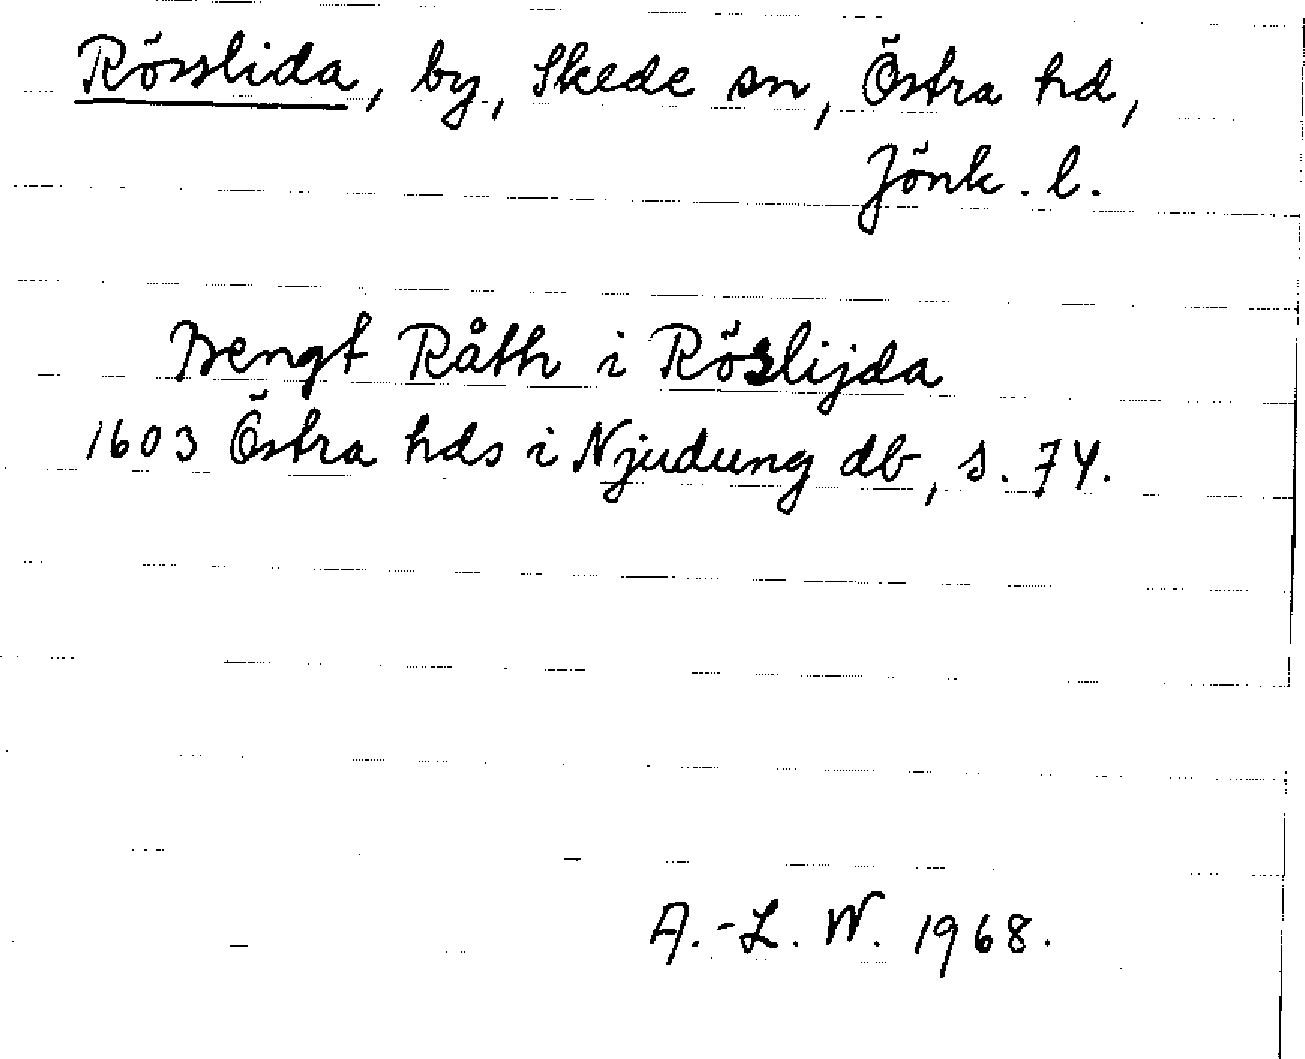 Rösslida, by, Skede sn, Östra hd,
Jönk. l.
Bengt Råth i Röslijda
1603 Östra hds i Njudung db, s. 74.
A.-L. W. 1968.